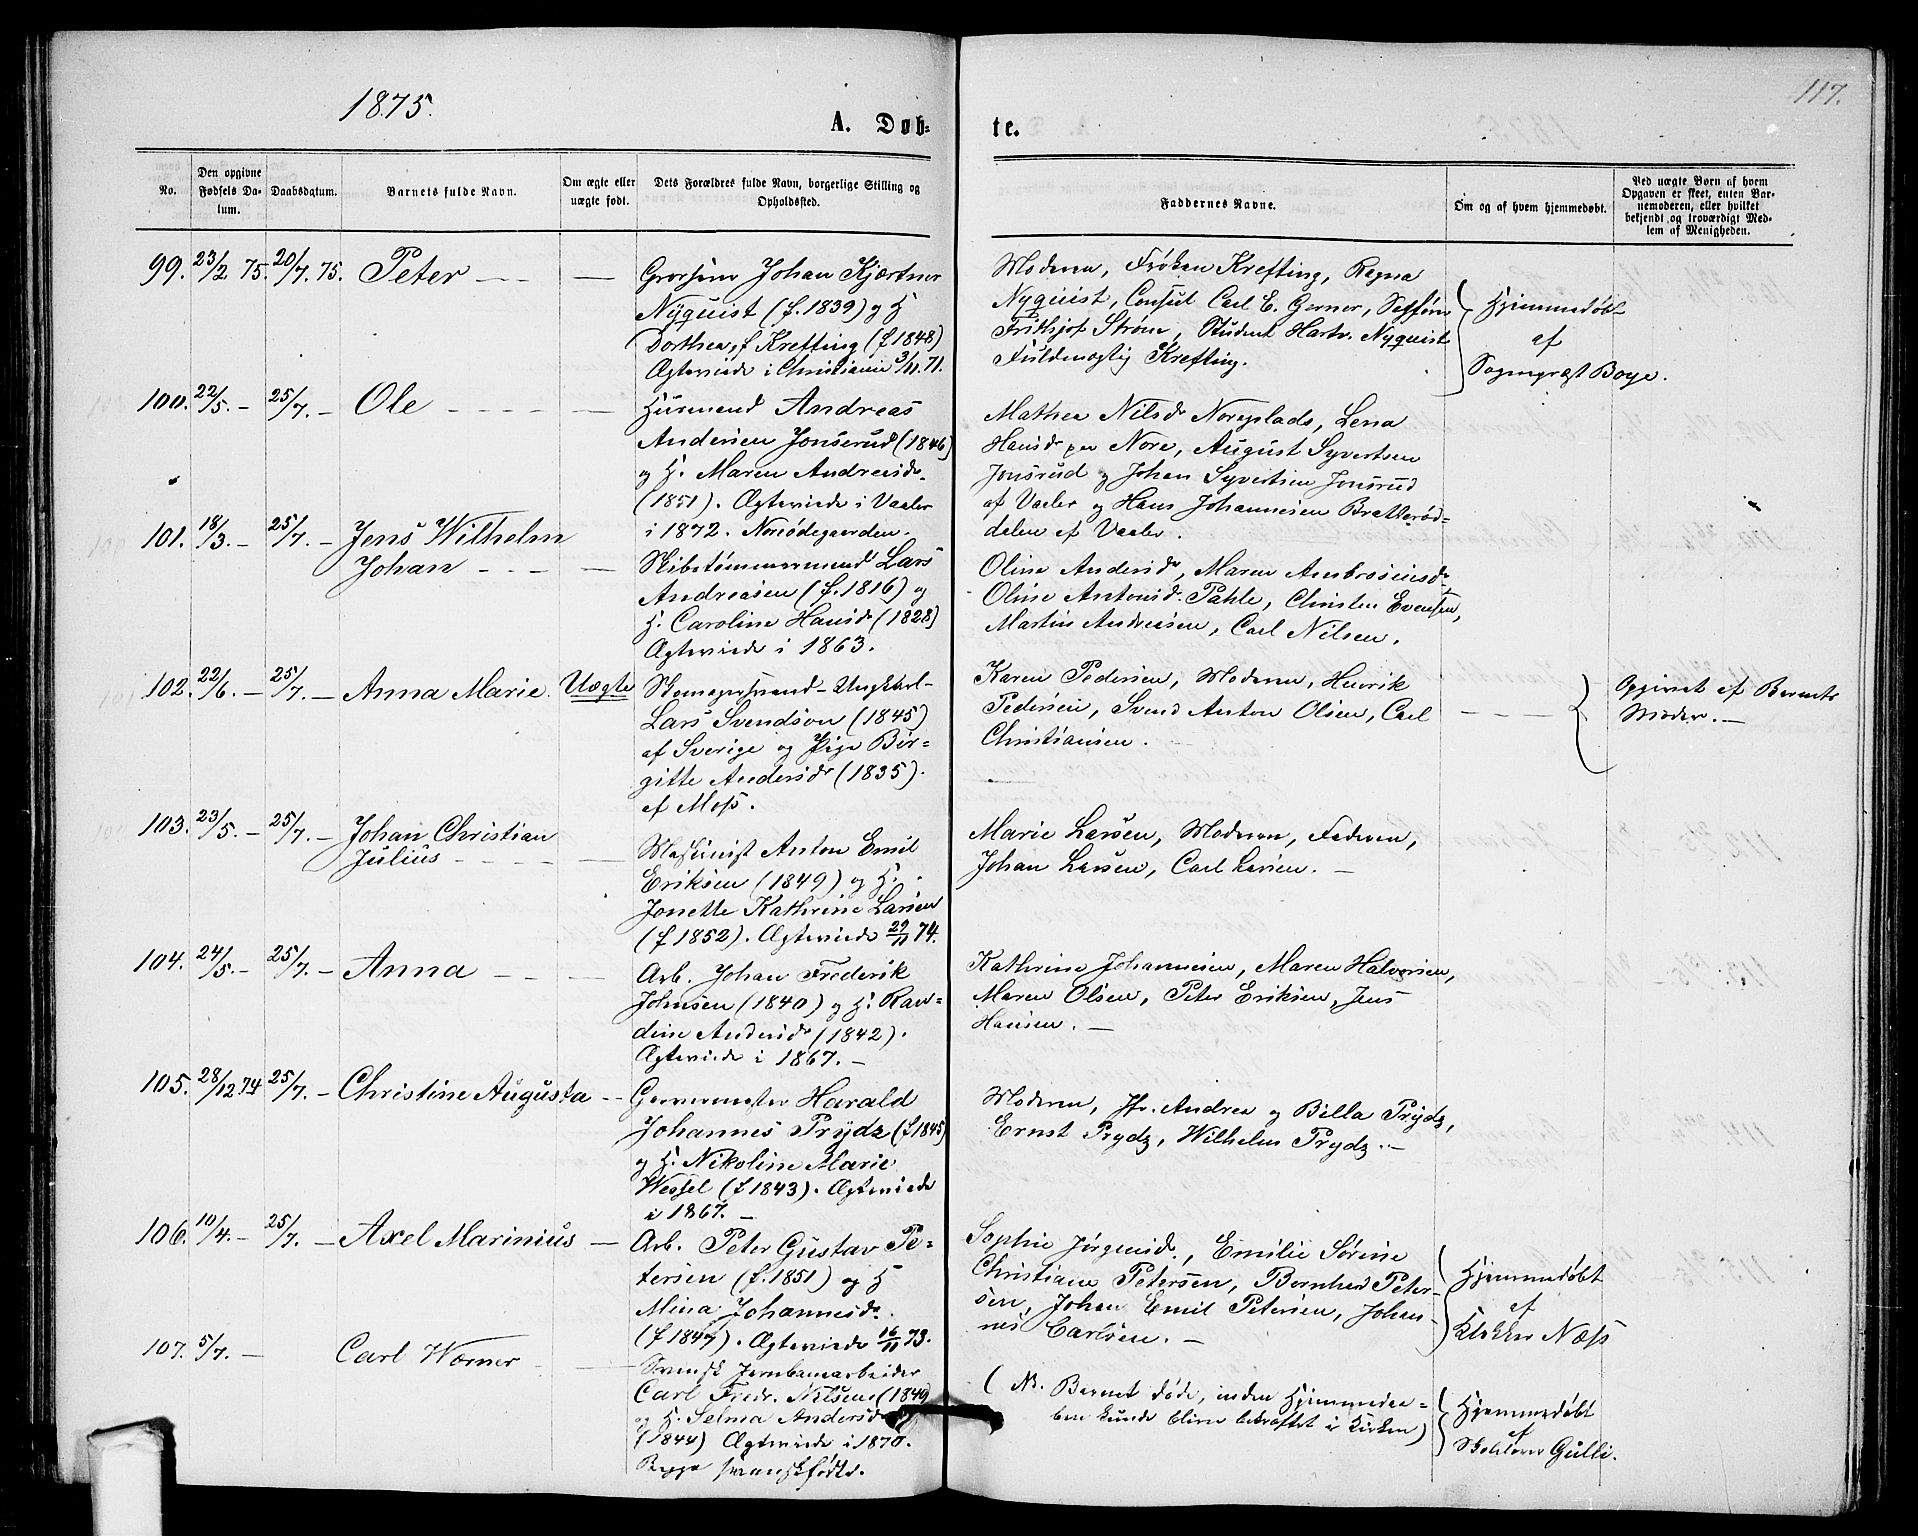 1875.
117.
A. Døb-
te.
No.
Den opgivne Fødsels Da-tum.
Daabsdatum.
Barnets fulde Navn.
Om ægte eller uægte født.
Dets Forældres fulde Navn, borgerlige Stilling og Opholdssted.
Faddernes Navne.
Om og af hvem hjemmedøbt.
Ved uægte Børn af hvem Opgaven er skeet, enten Bar-nemoderen, eller hvilket bekjendt og troværdigt Med-lem af Menigheden.
99. 23/2 75. 20/7. 75. Peter
Johan Kjortner
Nyquist (f. 1839) og H
Dorthea, f Krefting (f 1848)
Ægteviede i Christiania 3/11. 71.
Moderen, Frøken Krefting, Ragna
Nyquist, Consul Carl E. Gerner,
Frithjof Strøm, Student Hartv. Nyquist
Fuldmægtig Krefting.
Hjemmedøbt
af
Sogneprest Boye.
100. 22/5. – 25/7. – Ole
Huusmand Andreas
Andersen Jonserud (1846)
og H. Maren Andreasdr.
(1851). Ægteviede i Vaaler
i 1872. Noreødegaarden.
Mathea Nilsdr Noreplads, Lena
Hansdr paa Nore, August Syvertsen
Jonsrud og Johan Syvertsen Jonsrud
af Vaaler og Hans Johannesen Bratterød-
dalen af Vaaler.
101. 18/3. – 25/7. – Jens Wilhelm
Johan
Skibstømmermand Lars
Andreasen (f. 1816) og
H. Caroline Hansdr (1828)
Ægteviede i 1863.
Oline Andersdr, Maren Ambrosiusdr
Oline Antonsdr. Pahle, Christen Evensen,
Martin Andreasen, Carl Nilsen.
102. 22/6. – 25/7. – Anna Marie. Uægte
Skomagersvend – Ungkarl –
Lars Svendson (1845)
af Sverige og Pige Bir-
gitte Andersdr (1835).
af Moss.
Karen Pedersen, Moderen, Henrik
Pedersen, Svend Anton Olsen, Carl
Christiansen.
Opgivet af Barnets
Moder. –
103. 23/5. – 25/7. – Johan Christian
Julius
Maskinist Anton Emil
Eriksen (1849) og H.
Jonette Kathrine Larsen
(f 1852). Ægteviede 29/11 74.
Marie Larsen, Moderen, Faderen,
Johan Larsen, Carl Larsen. –
104. 24/5. – 25/7. – Anna
Arb. Johan Frederik
Johnsen (1840) og H. Ran-
dine Andersdr (1842).
Ægteviede i 1867. –
Kathrine Johannesen, Maren Halvorsen,
Maren Olsen, Peter Eriksen, Jens
Hansen. –
105. 28/12 74 25/7. – Christine Augusta
Garvermester Harald
Johannes Prydz (f 1845)
og H. Nikoline Marie
Wessel (f 1843). Ægteviede
i 1867. –
Moderen, Jfr. Andrea og Billa Prydz,
Ernst Prydz, Wilhelm Prydz. –
106. 10/4. – 25/7. – Axel Marinius
Arb. Peter Gustav Pe-
tersen (f. 1851) og H
Mina Johannesdr.
(f 1847). Ægteviede 16/11 73.
Sophie Jørgensdr., Emilie Sørine
Christiane Petersen, Bernhard Peter-
sen, Johan Emil Petersen, Johan-
nes Carlsen. –
Hjemmedøbt
af
Klokker Næss
107. 5/7. – Carl Werner
Svensk Jernbanearbeider
Carl Fredr. Nielsen (1849)
og H. Selma Andersdr
(1844) Ægteviede i 1870.
Begge svenskfødte.
( NB. Barnet døde, inden Hjemmedaa-
ben kunde blive bekræftet i Kirken)
Hjemmedøbt
af
Gulli.